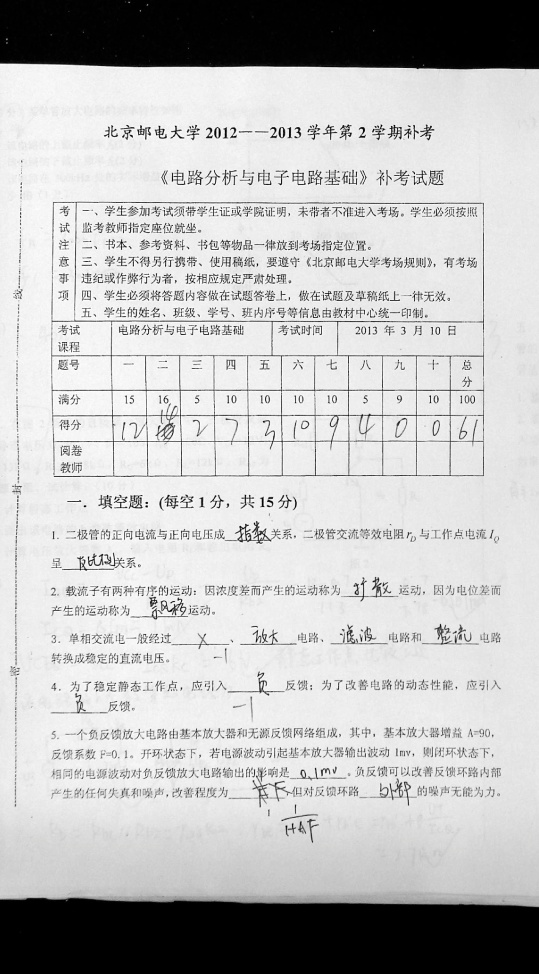 北京邮电大学 2012——2013 学年第 2 学期补考
《电路分析与电子电路基础》补考试题
考试注意事项
一、学生参加考试须带学生证或学院证明，未带者不准进入考场。学生必须按照
监考教师指定座位就坐。
二、书本、参考资料、书包等物品一律放到考场指定位置。
三、学生不得另行携带、使用稿纸，要遵守《北京邮电大学考场规则》，有考场
违纪或作弊行为者，按相应规定严肃处理。
四、学生必须将答题内容做在试题答卷上，做在试题及草稿纸上一律无效。
五、学生的姓名、班级、学号、班内序号等信息由教材中心统一印制。
考试课程 电路分析与电子电路基础 考试时间 2013 年 3 月 10 日
题号 一 二 三 四 五 六 七 八 九 十 总分
满分 15 16 5 10 10 10 10 5 9 10 100
得分 12 14 2 7 3 10 9 4 0 0 61
阅卷教师
一．填空题：(每空 1 分，共 15 分)
1. 二极管的正向电流与正向电压成 指数 关系，二极管交流等效电阻 r_D 与工作点电流 I_Q
呈 反比例 关系。
2. 载流子有两种有序的运动：因浓度差而产生的运动称为 扩散 运动，因为电位差而
产生的运动称为 漂移 运动。
3. 单相交流电一般经过 × 、 放大 电路、 滤波 电路和 整流 电路
转换成稳定的直流电压。 -1
4. 为了稳定静态工作点，应引入 负 反馈；为了改善电路的动态性能，应引入
负 反馈。 -1
5. 一个负反馈放大电路由基本放大器和无源反馈网络组成，其中，基本放大器增益 A=90，
反馈系数 F=0.1。开环状态下，若电源波动引起基本放大器输出波动 1mv，则闭环状态下，
相同的电源波动对负反馈放大电路输出的影响是 0.1mv 。负反馈可以改善反馈环路内部
产生的任何失真和噪声，改善程度为 ，但对反馈环路 外部 的噪声无能为力。
1/1+AF